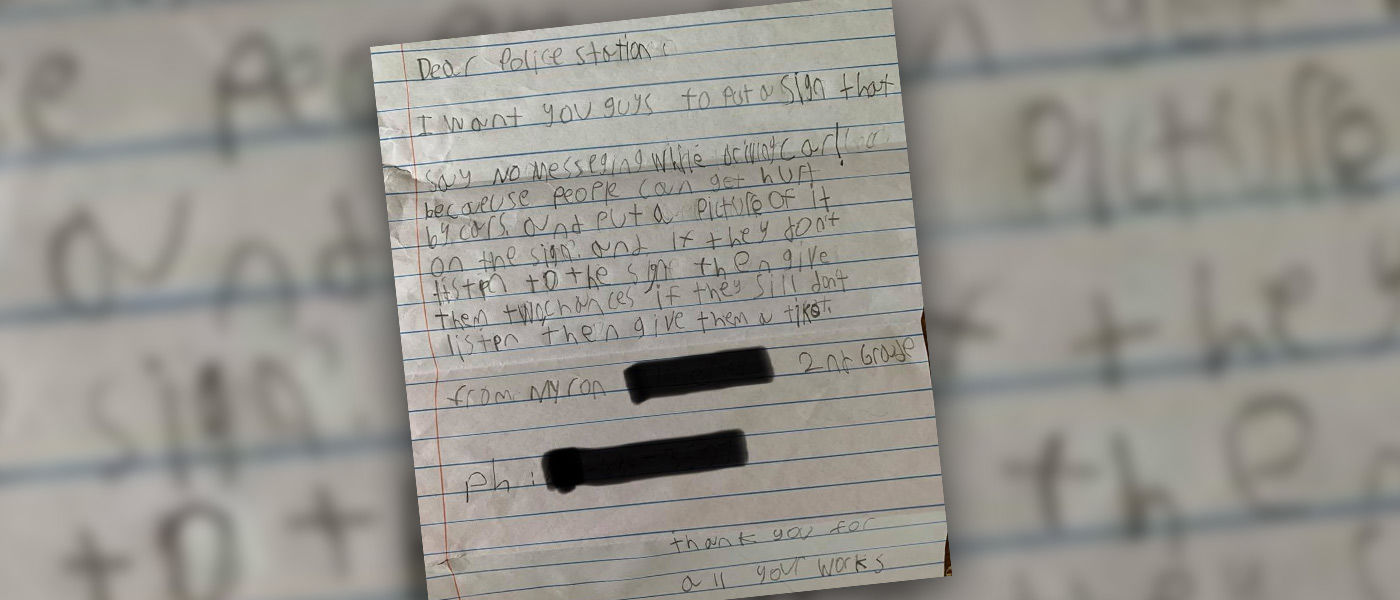 Dear Police station:
I want you guys to put a Sign that
say NO Messeging while driving car!
becaeuse people can get hurt
by cars. and put a picture of it
on the sign. and if they don't
listen to the sign then give
them two chances if they sill don't
listen then give them a tiket.
from Myron 2nd Grade
Ph:
thank you for
all your works